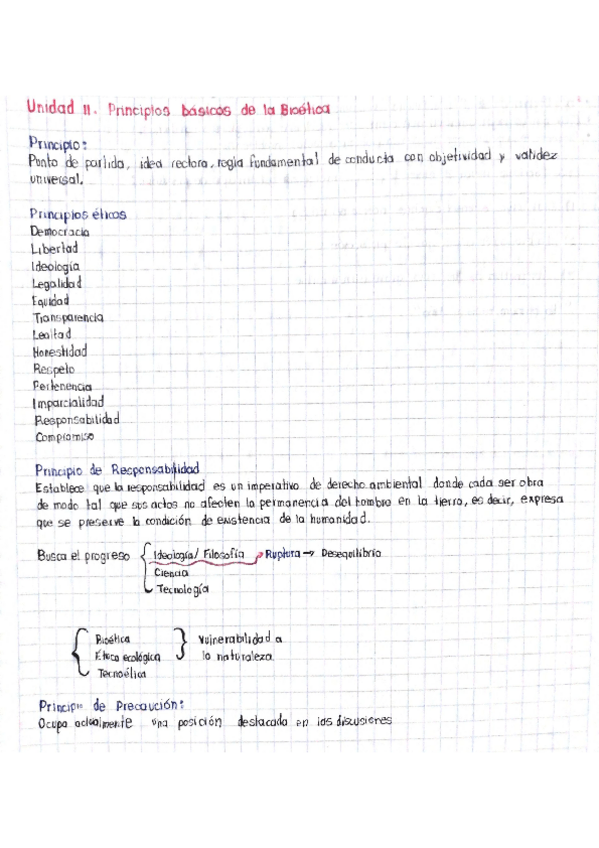 Unidad II. Principios básicos de la Bioética
Principio:
Punto de partida, idea rectora, regla fundamental de conducta con objetividad y validez
universal.
Principios éticos
Democracia
Libertad
Ideología
Legalidad
Equidad
Transparencia
Lealtad
Honestidad
Respeto
Pertenencia
Imparcialidad
Responsabilidad
Compromiso
Principio de Responsabilidad
Establece que la responsabilidad es un imperativo de derecho ambiental donde cada ser obra
de modo tal que sus actos no afecten la permanencia del hombre en la tierra, es decir, expresa
que se preserve la condición de existencia de la humanidad.
Busca el progreso { Ideología/ Filosofía → Ruptura → Desequilibrio
Ciencia
Tecnología
{ Bioética } Vulnerabilidad a
Ética ecológica la naturaleza.
Tecnoética
Principio de Precaución:
Ocupa actualmente una posición destacada en las discusiones